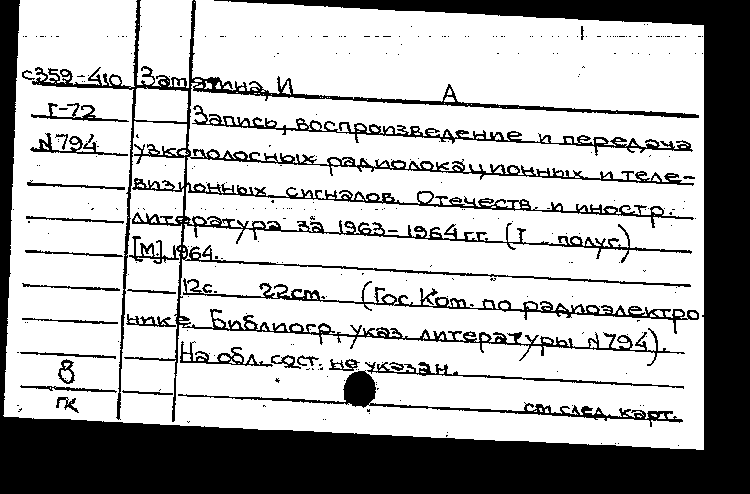 с359-410 Замятина, И
А
Г-72 Запись, воспроизведение и передача
N794 узкополосных радиолокационных и теле-
визионных сигналов. Отечеств. и иностр.
литература за 1963-1964 г.г. (I полуг.)
[М], 1964.
12с. 22ст. (Гос. Ком. по радиоэлектро
нике. Библиогр., указ. литературы N794).
На обл. сост. не указан.
8
гк см. след. карт.